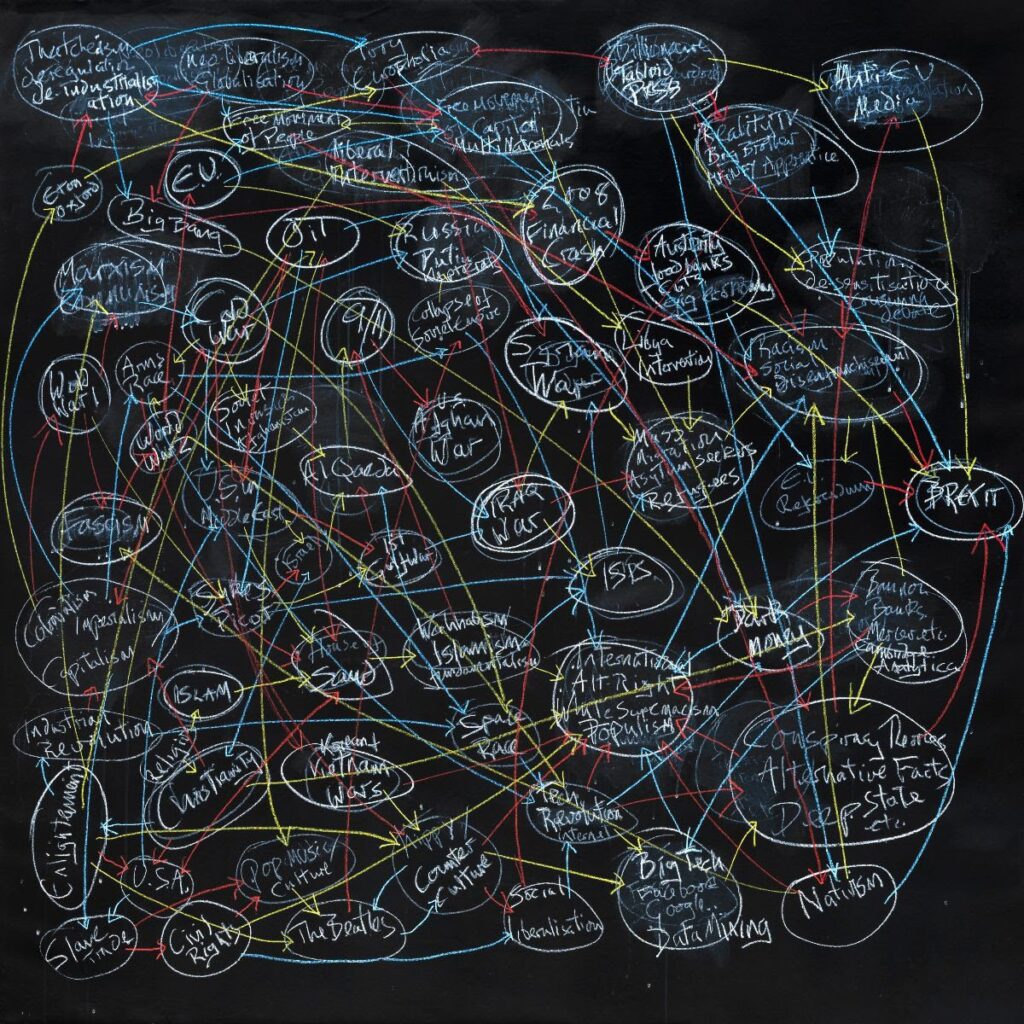 Thatcherism
deregulation
de.industrialis
ation
Neo Liberalism
Globalisation
Tory
Europhobia
Billionaire
Tabloid
Press
Anti E.U.
Media
Free Movement
of People
Free Movement
Capital
Multi Nationals
Reality TV
Big Brother
Apprentice
Liberal
Interventionism
Eton
Oxford
E.U.
Big Bang
Oil
Russia
Putin
2008
Financial
Crash
Austerity
foodbanks
Cuts
desensitisation
Marxism
Communism
Cold
War
9/11
Collapse of
Soviet Union
Syrian
War
Libya
Intervention
Racism
Social
Disenfranchisement
World
War 1
Arms
Race
World
War 2
Soviet
Invasion
Afghanistan
U.S.
Afghan
War
Al Qaeda
Mass
Migration
Asylum Seekers
Refugees
E.U.
Referendum
BREXIT
U.S. in
Middle East
IRAQ
WAR
Fascism
Israel
1st
Gulf War
ISIS
Sykes
Picot
Colonialism
Imperialism
Capitalism
House
Saud
Wahhabism
Islamism
Fundamentalism
Dark
Money
Bannon
Banks
Mercer etc
Cambridge
Analytica
ISLAM
International
Alt Right
White Supremacism
Populism
Industrial
Revolution
Space
Race
Christianity
Korean +
Vietnam
Wars
Conspiracy Theories
Alternative Facts
Deep State
etc.
Enlightenment
Tech
Revolution
Internet
U.S.A.
Pop Music
Culture
Hippy
Counter
Culture
Big Tech
Facebook
Google
Data Mixing
Social
Liberalisation
Nativism
Slave
Trade
Civil
Rights
The Beatles